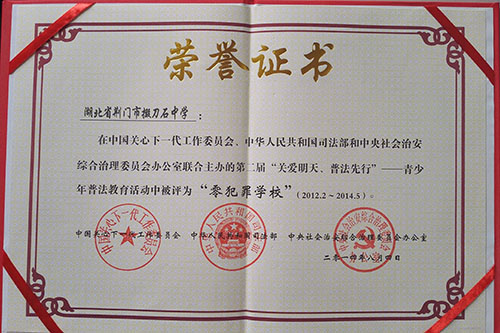 荣誉证书
湖北省荆门市掇刀石中学：
在中国关心下一代工作委员会、中华人民共和国司法部和中央社会治安
综合治理委员会办公室联合主办的第二届“关爱明天、普法先行”——青少
年普法教育活动中被评为“零犯罪学校”（2012.2～2014.5）
中国关心下一代工作委员会 中华人民共和国司法部 中央社会治安综合治理委员会办公室
二〇一四年八月四日